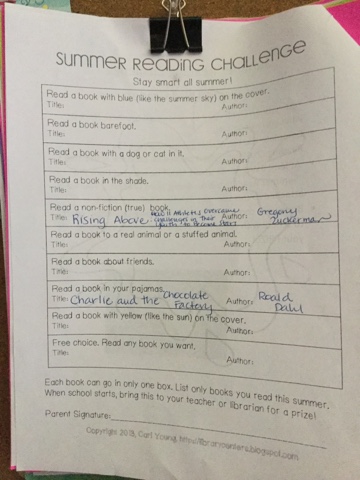 SUMMER READING CHALLENGE
Stay smart all summer!
Read a book with blue (like the summer sky) on the cover.
Title: Author:
Read a book barefoot.
Title: Author:
Read a book with a dog or cat in it.
Title: Author:
Read a book in the shade.
Title: Author:
Read a non-fiction (true) book.
Title: Rising Above How 11 Athletes Overcame Challenges in Their Youth to Become Stars Author: Gregory Zuckerman
Read a book to a real animal or a stuffed animal.
Title: Author:
Read a book about friends.
Title: Author:
Read a book in your pajamas.
Title: Charlie and the Chocolate Factory Author: Roald Dahl
Read a book with yellow (like the sun) on the cover.
Title: Author:
Free choice. Read any book you want.
Title: Author:
Each book can go in only one box. List only books you read this summer.
When school starts, bring this to your teacher or librarian for a prize!
Parent Signature:
Copyright 2013, Cari Young, http://librarycenters.blogspot.com